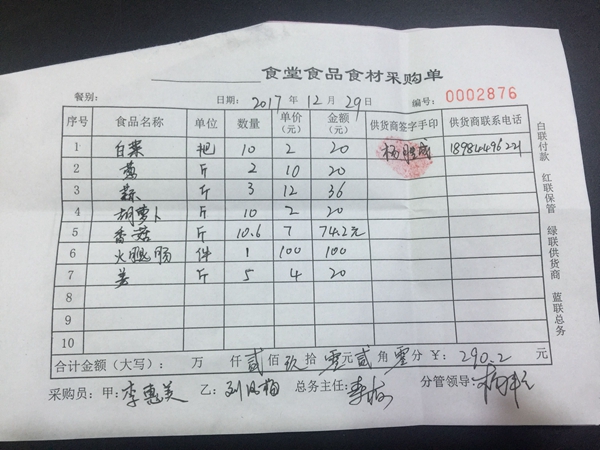 食堂食品食材采购单
餐别： 日期：2017年12月29日 编号：0002876
序号 食品名称 单位 数量 单价（元） 金额（元） 供货商签字手印 供货商联系电话
1 白菜 把 10 2 20 18984496221
2 葱 斤 2 10 20
3 蒜 斤 3 12 36
4 胡萝卜 斤 10 2 20
5 香菇 斤 10.6 7 74.2元
6 火腿肠 件 1 100 100
7 姜 斤 5 4 20
8
9
10
合计金额（大写）： 万 仟贰佰玖拾零元贰角零分 ¥：290.2 元
采购员：甲：李惠美 乙： 总务主任： 分管领导：
白联付款 红联保管 绿联供货商 蓝联总务